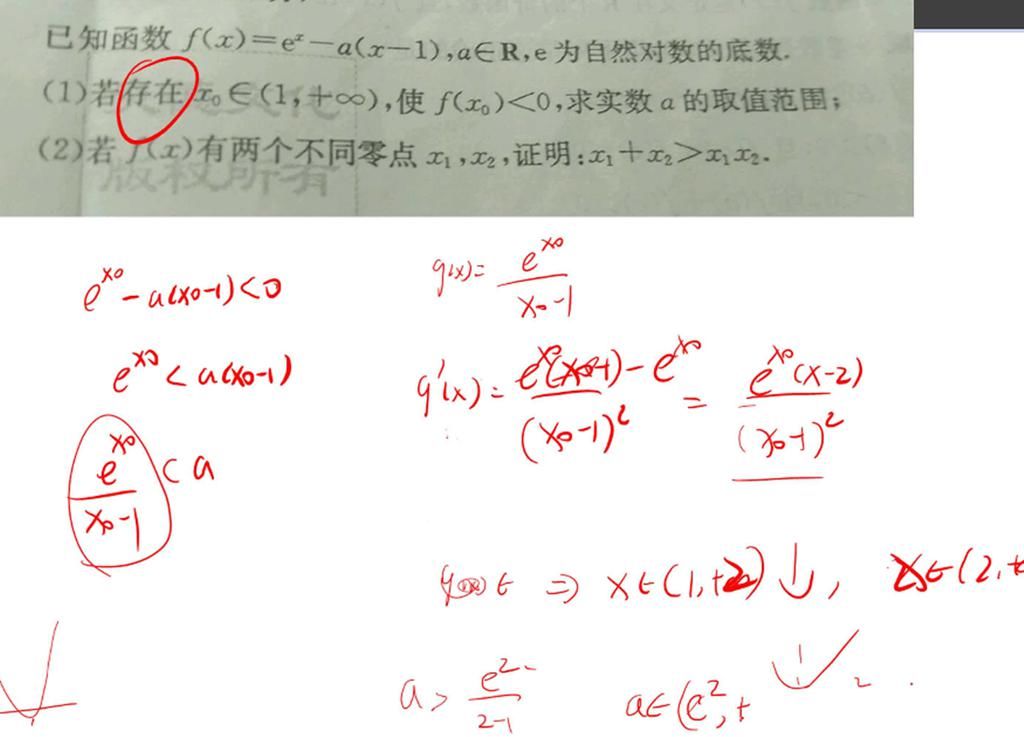 已知函数 f(x)=eˣ-a(x-1),a∈R,e为自然对数的底数.
(1)若存在 x₀∈(1,+∞),使 f(x₀)<0,求实数 a 的取值范围;
(2)若 f(x)有两个不同零点 x₁,x₂,证明:x₁+x₂>x₁x₂.
版权所有
e^x0 - a(x0-1)<0
e^x0 < a(x0-1)
e^x0/(x0-1) < a
g(x)= e^x0/(x0-1)
g'(x)= (e^x0(x0-1)-e^x0)/(x0-1)² = e^x0(x-2)/(x0-1)²
⇒ x∈(1,+2)↓, x∈(2,+
a> e²/(2-1) a∈(e²,+
2